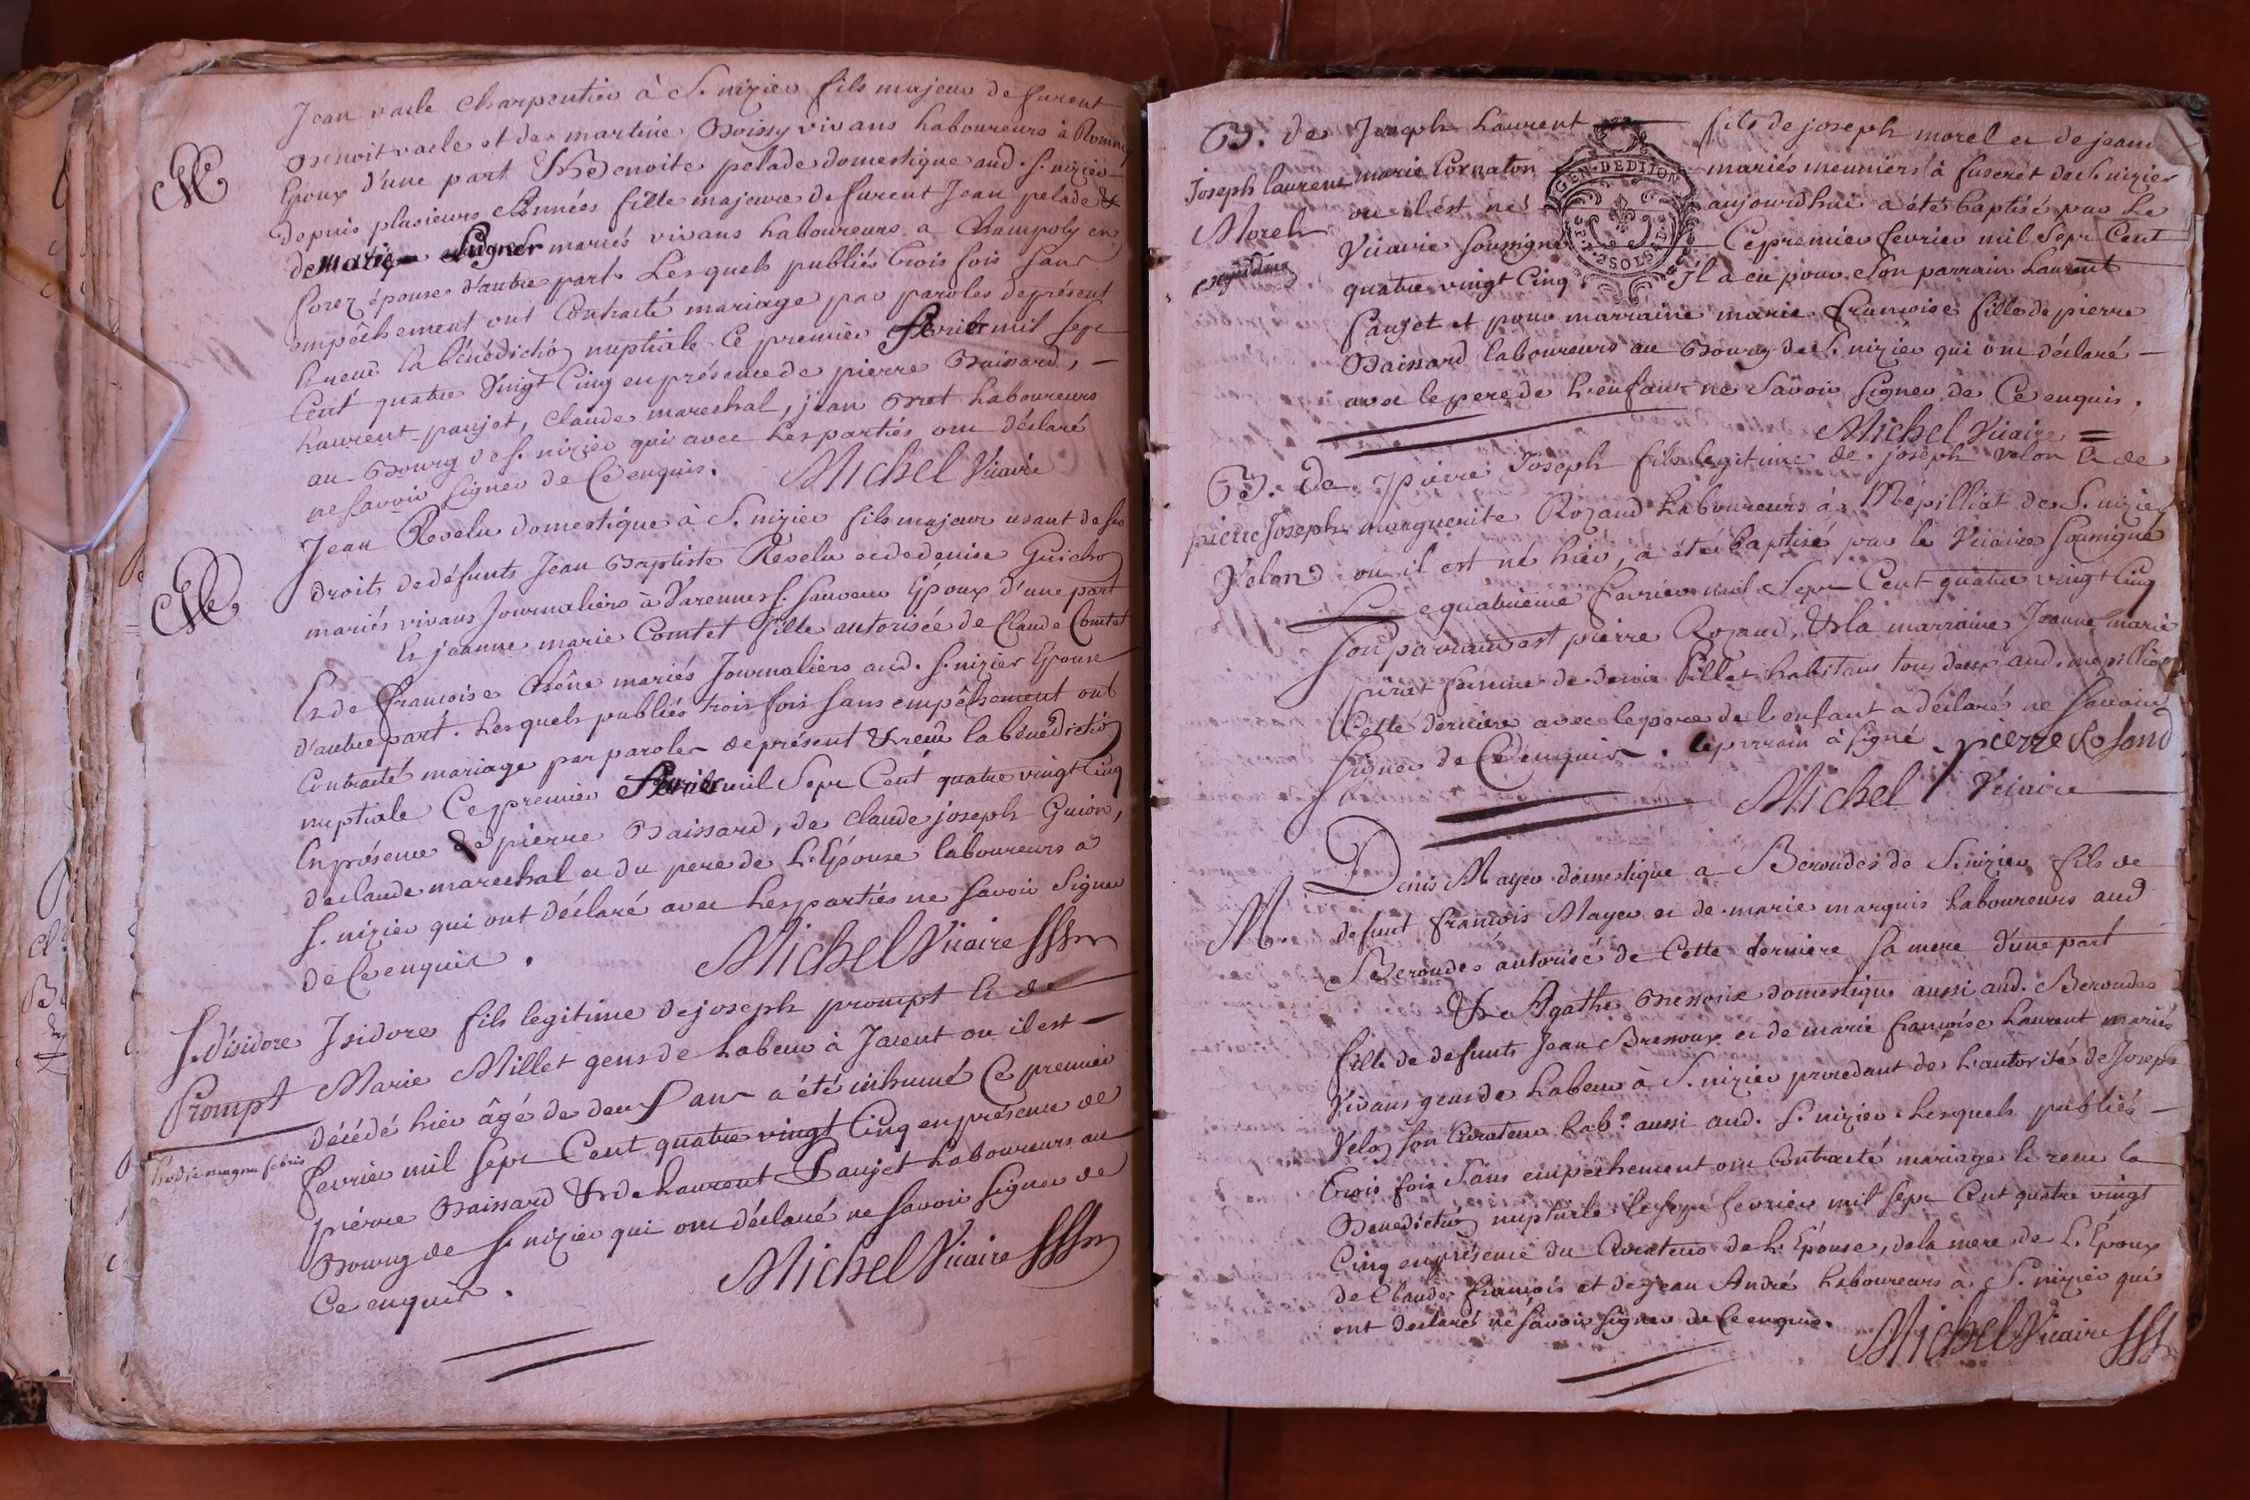 Jean vacle Charpentier à S. nizier fils majeur de furent
Benoit vacle et de martine Boissy vivans Laboureurs à Romnay
Epoux d'une part & Benoite pelade domestique aud. S. nizier
depuis plusieurs Années fille majeure de furent Jean pelade &
de Marie mariés vivans Laboureurs a Champoly en
forez épouse d'autre part. Lesquels publiés trois fois sans
empêchement ont Contracté mariage par paroles de présent
& reçu la bénédictiō nuptiale Ce premier fevrier mil sept
Cent quatre Vingt Cinq en présence de pierre Baissard,
Laurent paujet, Claude mareschal, jean Laboureurs
au Bourg de S. nizier qui avec Les parties ont déclaré
ne savoir signer de Ce enquis. Michel Vicaire
M
Jean Revelu domestique à S. nizier fils majeur usant de ses
droits de défunts Jean Baptiste Revelu et de denise Guichō
mariés vivans Journaliers à Varennes S. Sauveur Epoux d'une part
Et jeanne marie Comtet fille autorisée de Claude Comtet
Et de françoise Chêne mariés Journaliers aud. S. nizier Epouse
d'autre part. Lesquels publiés trois fois sans empêchement ont
Contracté mariage par paroles de présent & reçu la bénédictiō
nuptiale Ce premier fevrier mil Sept Cent quatre vingt Cinq
En présence de pierre Baissard, de Claude joseph Guion,
de Claude mareschal et du pere de L'Epouse laboureurs a
S. nizier qui ont déclaré avec Les parties ne savoir Signer
de Ce enquis. Michel Vicaire
M
S. d'isidore
Prompt
Isidore fils legitime de joseph prompt Et de
Marie Millet gens de Labeur à Jarent ou il est
décédé hier âgé de deux ans a été inhumé Ce premier
fevrier mil sept Cent quatre vingt Cinq en présence de
pierre Baissard & de Laurent Paujet Laboureurs au
Bourg de S. nizier qui ont déclaré ne savoir signer de
Ce enquis. Michel Vicaire
B. de
Joseph laurent
Morel
Joseph Laurent fils de joseph morel et de jeanne
marie Cornaton mariés meuniers à fuseret de S. nizier
ou il est né aujourdhui a été baptisé par le
Vicaire soussigné Ce premier fevrier mil Sept Cent
quatre vingt Cinq. Il a eu pour Son parrain Laurent
Paujet et pour marraine marie françoise fille de pierre
Baissard laboureurs au Bourg de S. nizier qui ont déclaré
avec le pere de L'enfant ne Savoir signer de Ce enquis.
Michel Vicaire
GEN·DEDITION
2 SOLS
B. de
pierre Joseph
Velon
Pierre Joseph fils legitime de joseph velon Et de
marguerite Rozand Laboureurs à Mépilliat de S. nizier
ou il est né hier, a été baptisé par le Vicaire soussigné
Ce quatrieme fevrier mil Sept Cent quatre vingt Cinq
Son parrain est pierre Rozand, & la marraine Jeanne marie
femme de denis Pillet habitans tous deux aud. mepilliat
Cette derniere avec le pere de l'enfant a déclaré ne savoir
signer de Ce enquis. le parrain à signé pierre Rosand
Michel Vicaire
M.
Denis Mayer domestique a Beroudes de S. nizier fils de
defunt françois Mayer et de marie marquis Laboureurs aud.
Beroudes autorisé de Cette derniere Sa mere d'une part
& Agathe Bressoux domestique aussi aud. Beroudes
fille de defunts Jean Bressoux et de marie françoise Laurent mariés
Vivans gens de Labeur à S. nizier procedant de L'autorité de Joseph
Velō son Curateur Lab. aussi aud. S. nizier Lesquels publiés
trois fois Sans empêchement ont Contracté mariage & reçu la
Bénédictiō nuptiale le sept fevrier mil Sept Cent quatre vingt
Cinq en présence du Curateur de L'Epouse, de la mere de L'Epoux
de Claude françois et de jean André Laboureurs a S. nizier qui
ont déclaré ne savoir signer de Ce enquis.
Michel Vicaire